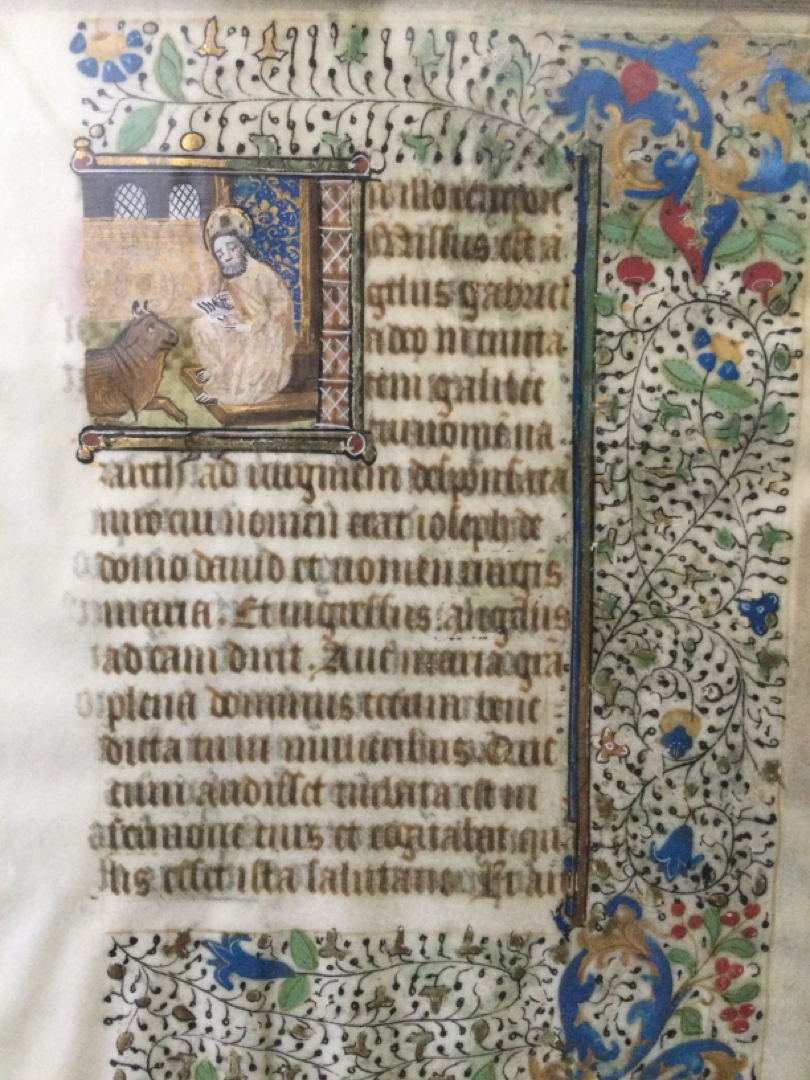 n illo tempore
Missus est a
gelus gabriel
a deo in ciuita
tem galilee
cui nomen na
zareth ad uirginem desponsata
uiro cui nomen erat ioseph de
domo dauid et nomen uirgis
maria. Et ingressus angelus
ad eam dixit. Aue maria gra
plena dominus tecum bene
dicta tu in mulieribus. Que
cum audisset turbata est in
sermone eius et cogitabat qua
lis esset ista salutatio. Et ait